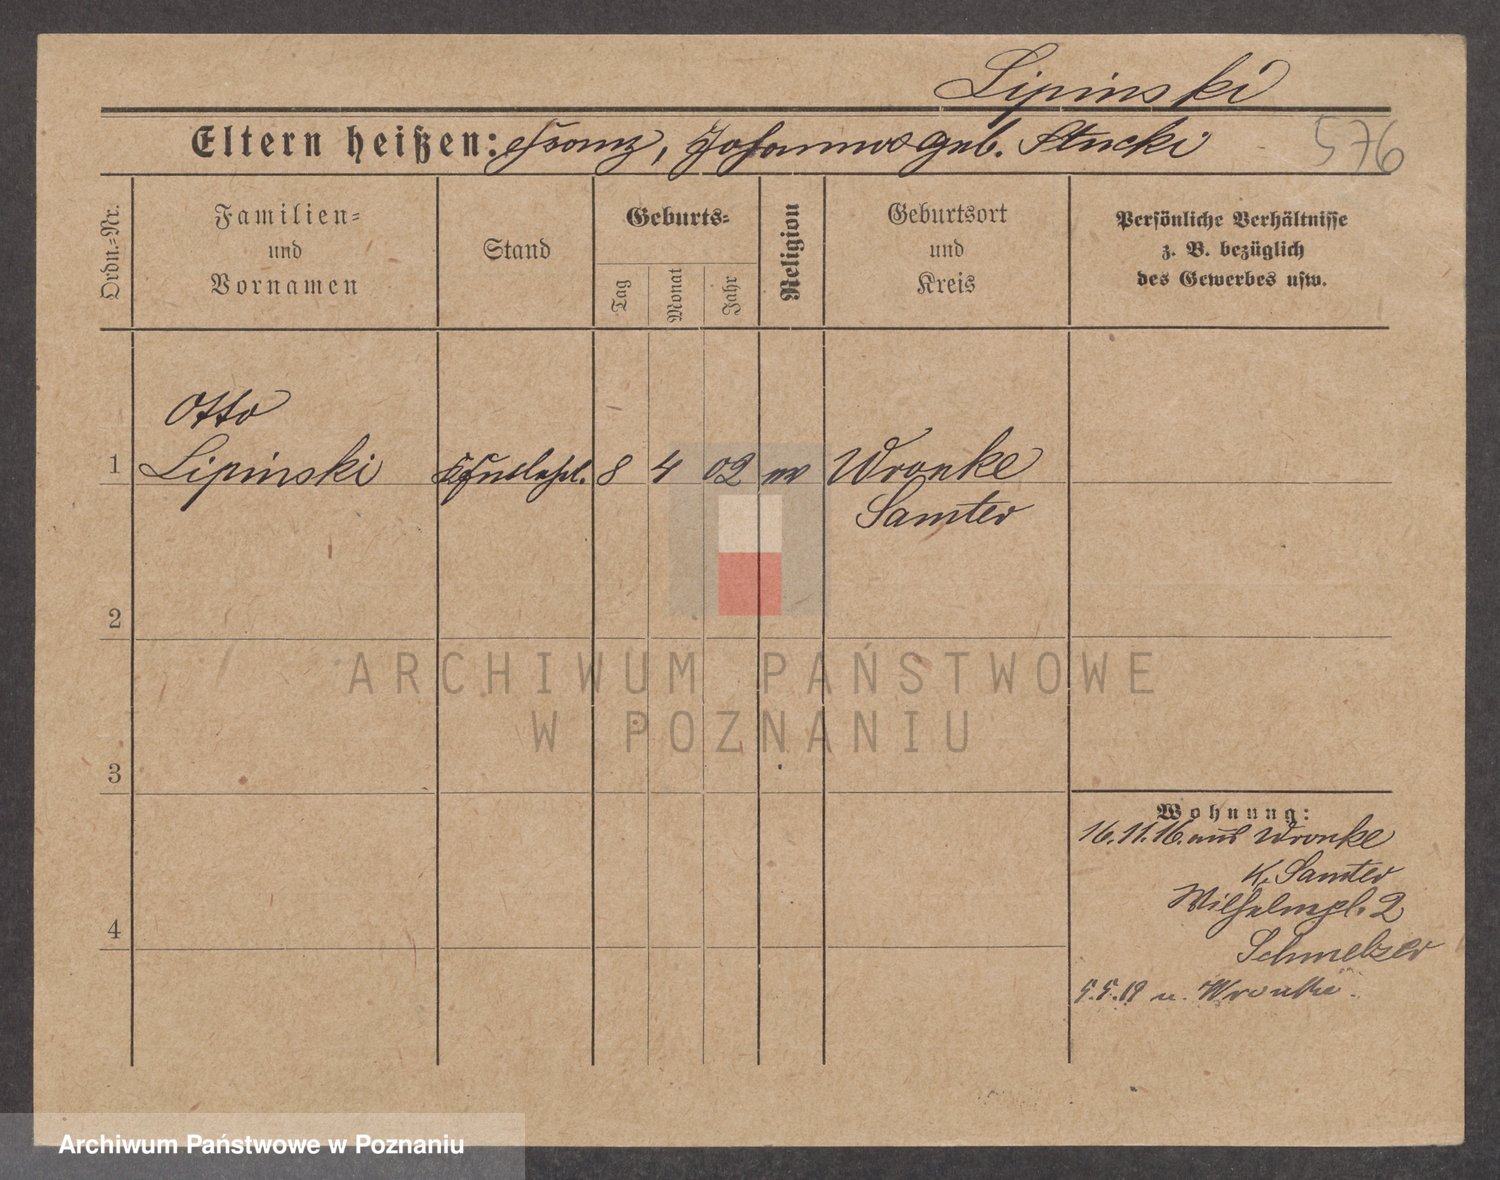 Lipinski
Eltern heißen: Franz, Johanna geb. Stucki
576
Ordn.=Nr.
Familien=
und
Vornamen
Stand
Geburts=
Tag
Monat
Jahr
Religion
Geburtsort
und
Kreis
Persönliche Verhältnisse
z. B. bezüglich
des Gewerbes usw.
Otto
1 Lipinski 8 4 02 ev Wronke
Samter
2
3
4
Wohnung:
16.11.16. aus Wronke
K. Samter
Wilhelmpl. 2
Schmelzer
5.5.19 n. Wronke.
ARCHIWUM PAŃSTWOWE
W POZNANIU
Archiwum Państwowe w Poznaniu